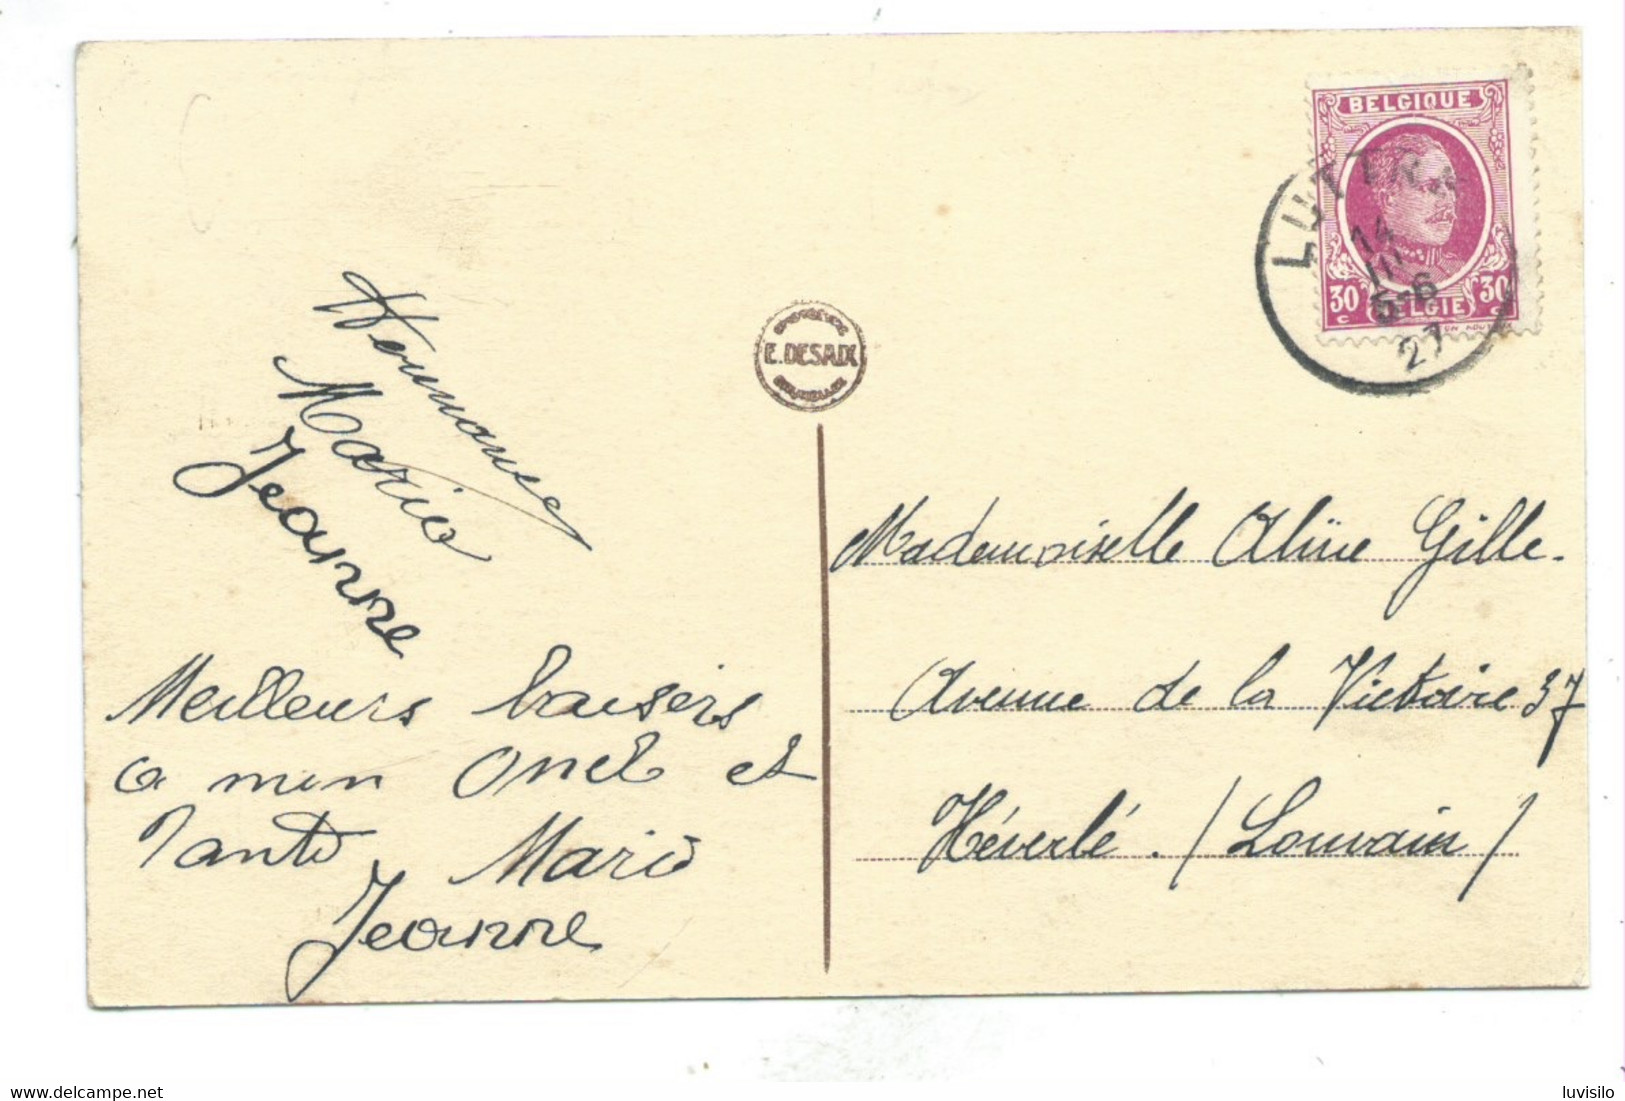 Hermance
Marie
Jeanne
Meilleurs baisers
a mon Oncle et
Tante Marie
Jeanne
E. DESAIX
BELGIQUE
30 c BELGIE 30 c
LUTTR
14
III
5-6
27
Mademoiselle Aline Gille.
Avenue de la Victoire 37
Héverlé. / Louvain /
www.delcampe.net
luvisilo